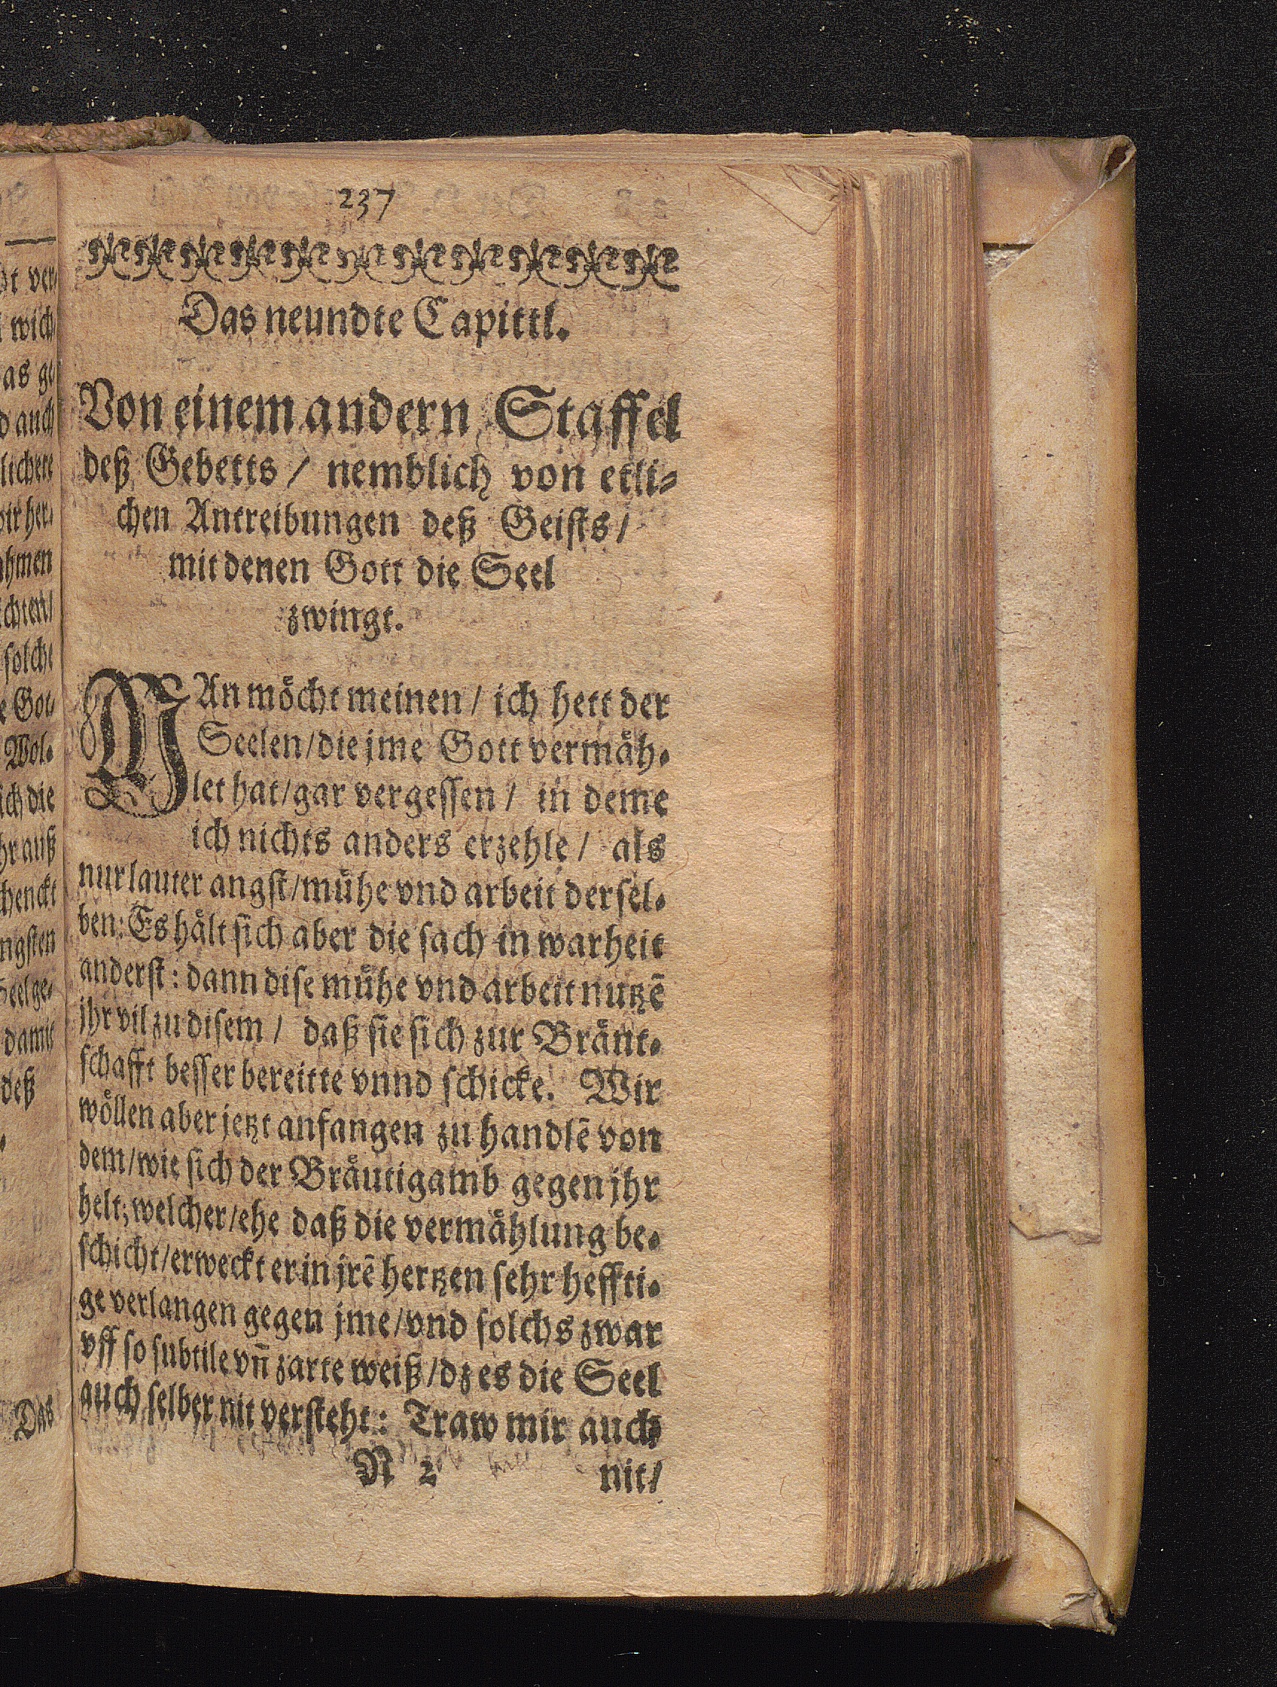 237
Das neundte Capittl.
Von einem andern Staffel
deß Gebetts / nemblich von etli-
chen Antreibungen deß Geists /
mit denen Gott die Seel
zwingt.
MAn möcht meinen / ich hett der
Seelen/die jme Gott vermäh-
let hat/gar vergessen / in deme
ich nichts anders erzehle / als
nur lauter angst/mühe vnd arbeit dersel-
ben: Es hält sich aber die sach in warheit
anderst: dann dise mühe vnd arbeit nutzē
jhr vil zu disem / daß sie sich zur Bräut-
schafft besser bereitte vnnd schicke. Wir
wöllen aber jetzt anfangen zu handlē von
dem/wie sich der Bräutigamb gegen jhr
helt; welcher/ehe daß die vermählung be-
schicht/erweckt er in jrē hertzen sehr heffti-
ge verlangen gegen jme/vnd solchs zwar
vff so subtile vñ zarte weiß/dz es die Seel
auch selber nit versteht: Traw mir auch
R 2 nit/
ver-
wich
as ge
auch
lichere
wir her-
ahmen
ichten/
solche
Got-
Wol-
ich die
hr auß
henckt
ngsten
Seel ge-
damit
deß
Das